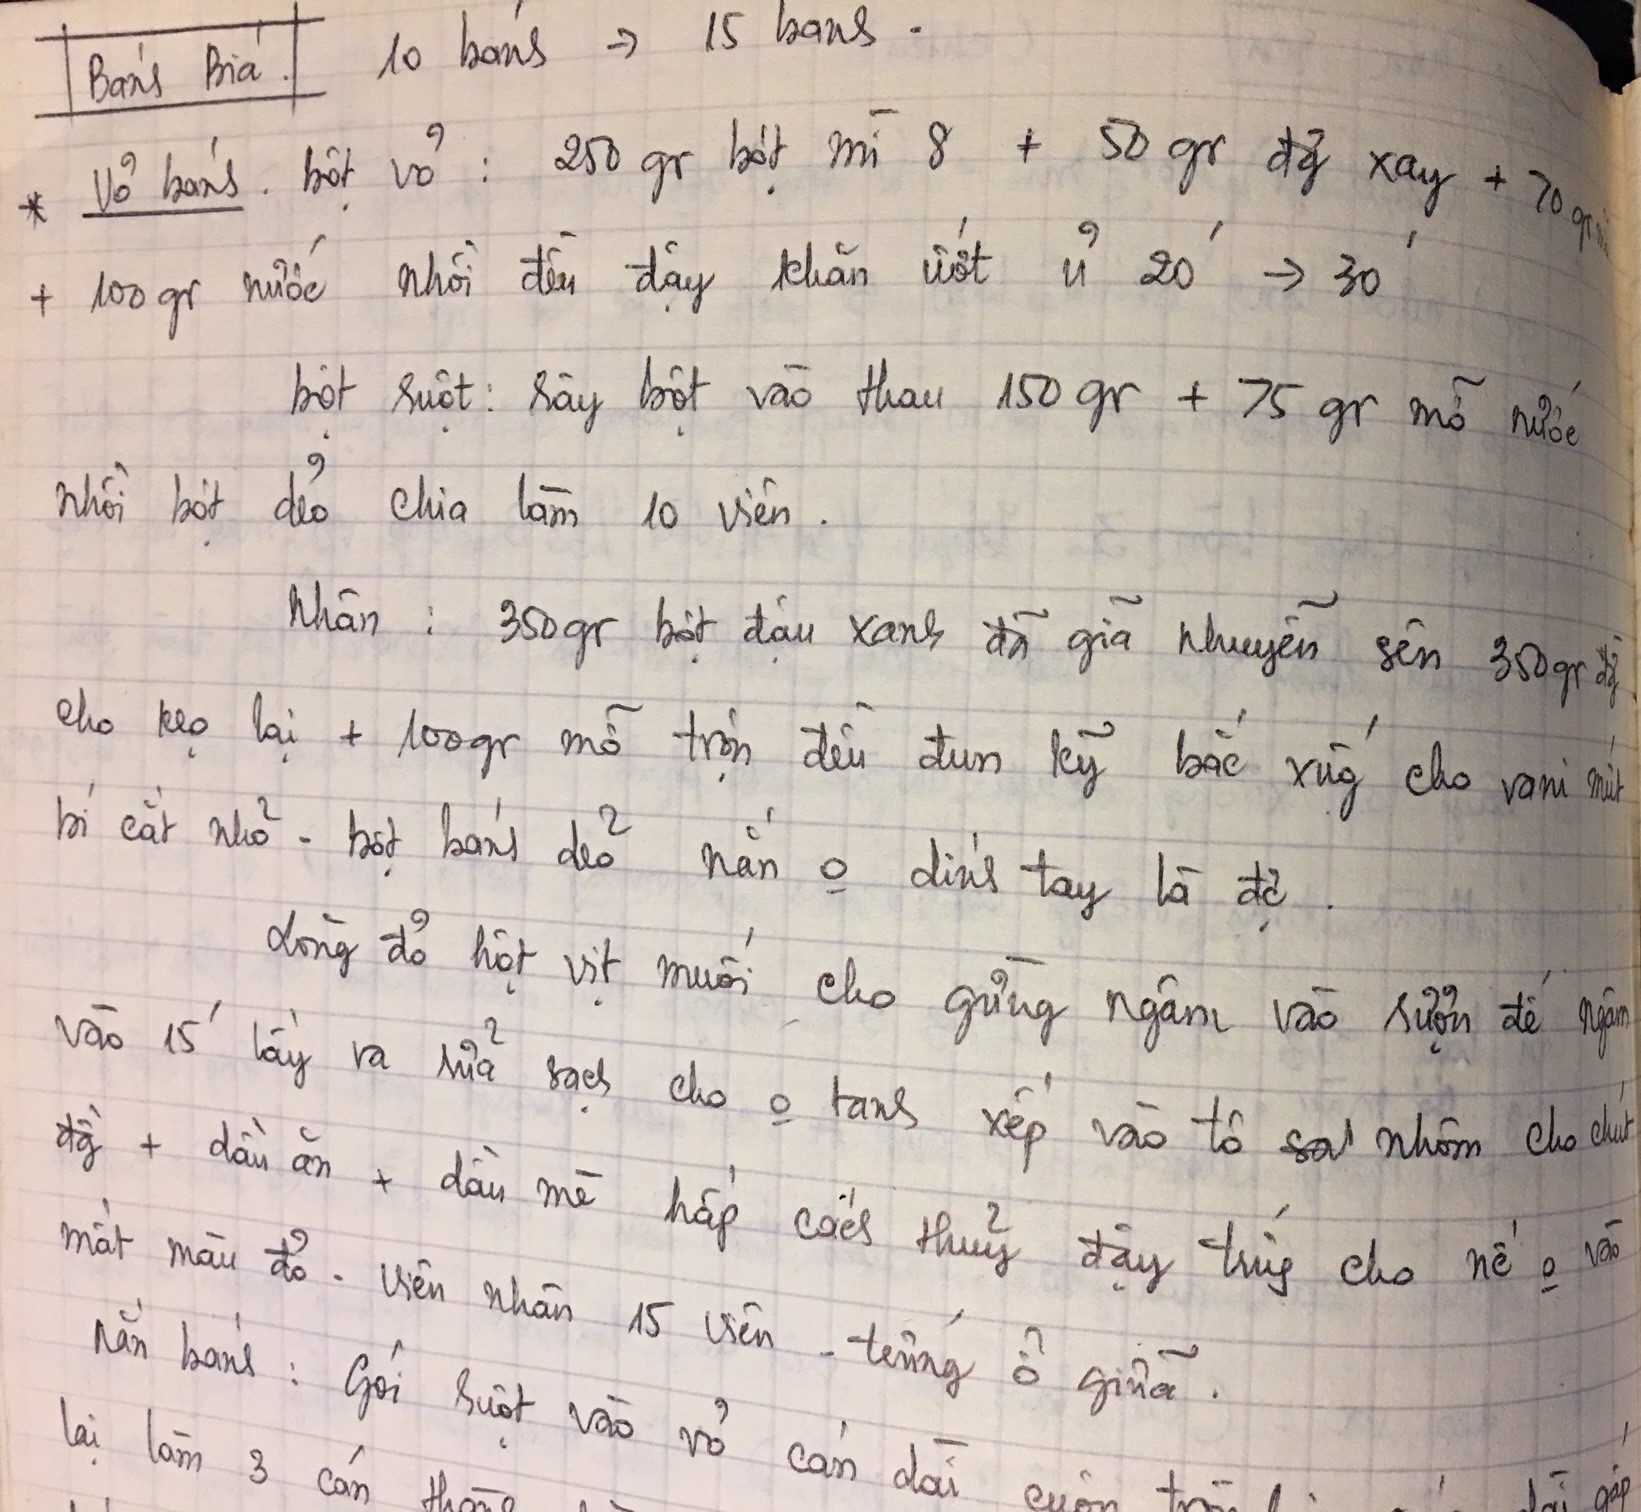 Bánh Bía. 10 bánh → 15 bánh.
* Vỏ bánh. bột vỏ: 250 gr bột mì 8 + 50 gr đg xay + 70 gr
+ 100 gr nước nhồi đều đậy khăn ướt ủ 20' → 30'
bột ruột: rây bột vào thau 150 gr + 75 gr mỡ nước
nhồi bột dẻo chia làm 10 viên.
Nhân: 350gr bột đậu xanh đã giã nhuyễn sên 350gr đg
cho kẹo lại + 100gr mỡ trộn đều đun kỹ bắc xúg cho vani mứt
bí cắt nhỏ - bột bánh dẻo nắn o dính tay là đc.
Lòng đỏ hột vịt muối cho gừng ngâm vào rượu đế ngâm
vào 15' lấy ra rửa sạch cho o tanh xếp vào tô nhôm cho chút
đg + dầu ăn + dầu mè hấp cách thuỷ đậy trúg cho nó o vào
mất màu đỏ - viên nhân 15 viên - trứng ở giữa.
Nắn bánh: Gói ruột vào vỏ cán dài cuộn
lại làm 3 cán